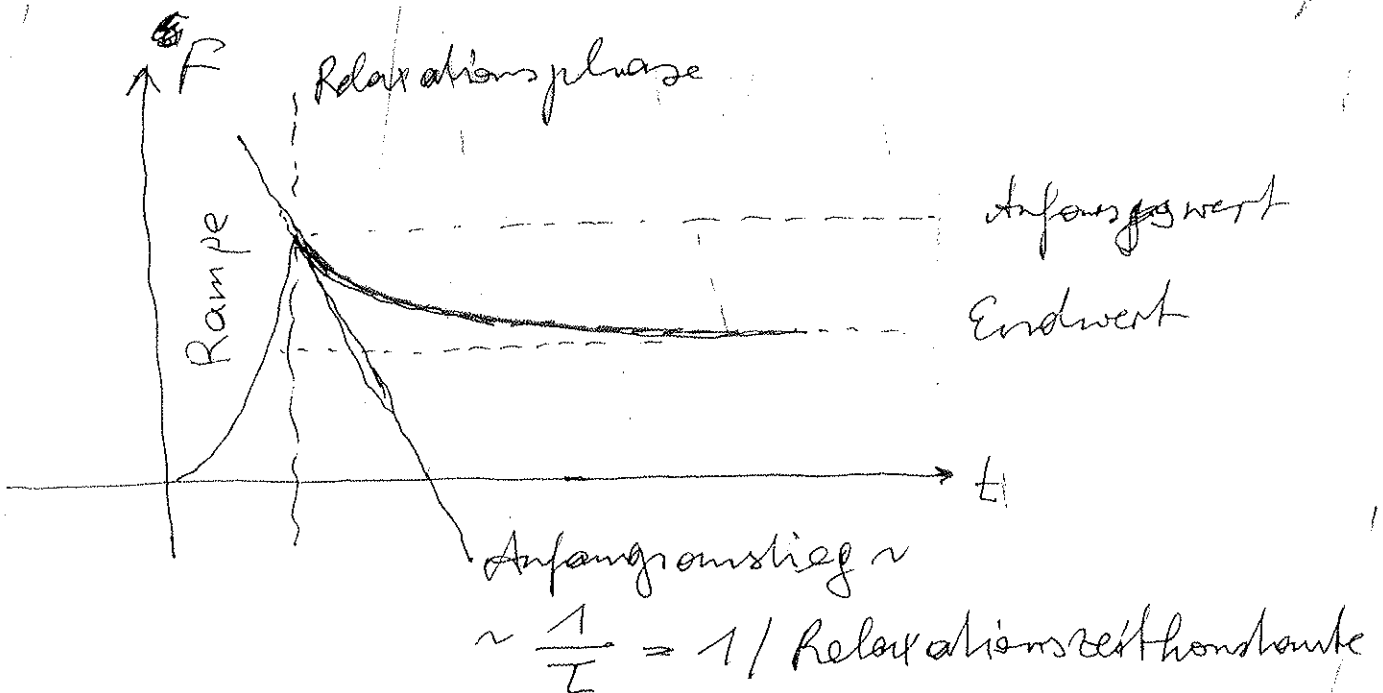 F
Relaxationsphase
Rampe
Anfangswert
Endwert
t
Anfangsanstieg ~
~ 1/τ = 1 / Relaxationszeitkonstante